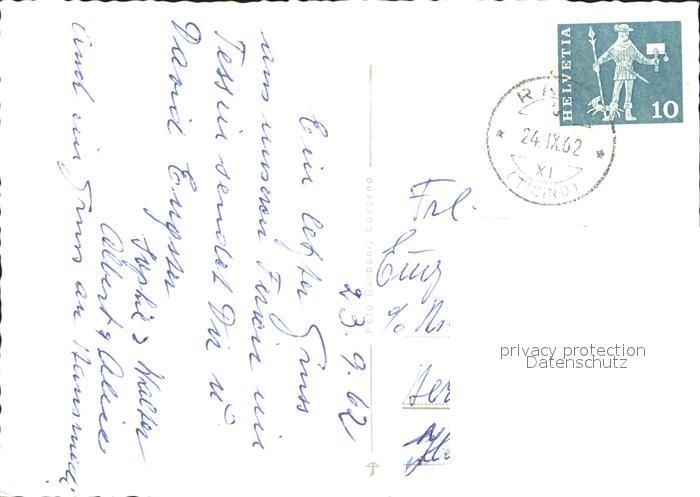 23.9.62
Ein letzter Gruss
aus unseren Ferien im
Tessin sendet Dir u.
David Eugster
Sophie & Walter
Albert & Alice
Und ein Gruss an Hansruedi.
Foto Garbani, Locarno
HELVETIA
10
24.IX.62
XI
(TICINO)
Frl.
Eug
c/o
privacy protection
Datenschutz